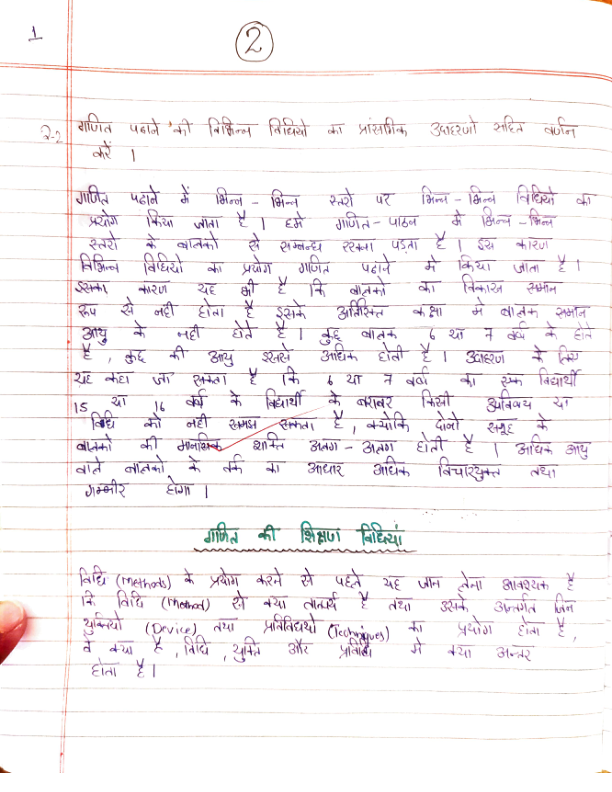 1
2
2-2 गणित पढाने की विभिन्न विधियो का प्रांसगिक उदाहरणो सहित वर्णन
करें ।
गणित पढाने में भिन्न - भिन्न स्तरो पर भिन्न - भिन्न विधियो का
प्रयोग किया जाता है । हमे गणित - पाठन मे भिन्न - भिन्न
स्तरो के बालको से सम्बन्ध रखना पड़ता है । इस कारण
विभिन्न विधियो का प्रयोग गणित पढाने मे किया जाता है ।
इसका कारण यह भी है कि बालको का विकास समान
रूप से नही होता है इसके अतिरिक्त कक्षा मे बालक समान
आयु के नही होते है । कुछ बालक 6 या 7 वर्ष के होते
है , कुछ की आयु इससे अधिक होती है । उदाहरण के लिए
यह कहा जा सकता है कि 6 या 7 वर्ष का एक विद्यार्थी
15 या 16 वर्ष के विद्यार्थी के बराबर किसी या
विधि को नही समझ सकता है , क्योकि दोनो समूह के
बालको की मानसिक शक्ति अलग - अलग होती है । अधिक आयु
वाले बालको के तर्क का आधार अधिक विचारयुक्त तथा
गम्भीर होगा ।
गणित की शिक्षण विधियां
विधि (methods) के प्रयोग करने से पहले यह जान लेना आवश्यक है
कि विधि (method) से क्या तात्पर्य है तथा उसके अन्तर्गत जिन
युक्तियो (Device) तथा प्रविधियो (Techniques) का प्रयोग होता है ,
वे क्या है , विधि , युक्ति और प्रविधि मे क्या अन्तर
होता है ।